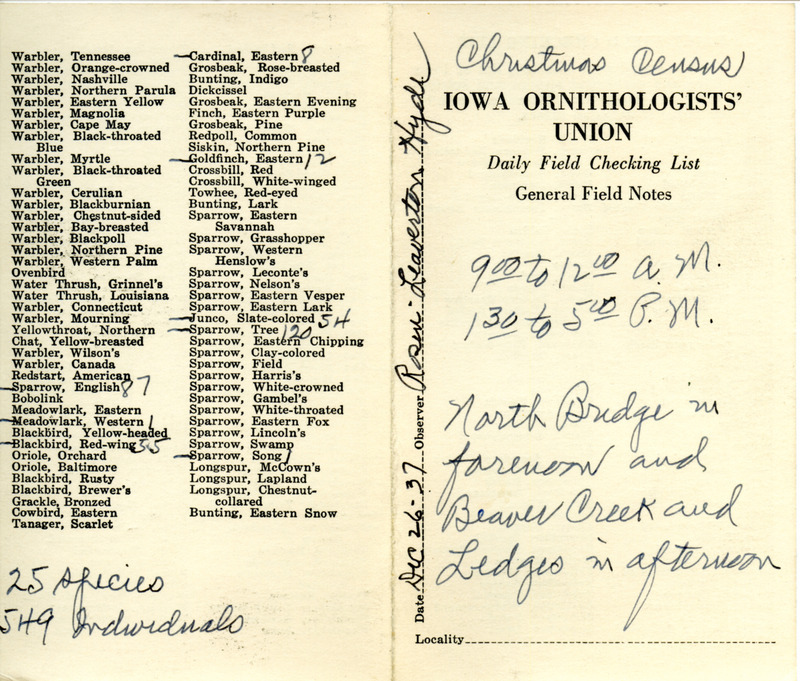 Warbler, Tennessee
Warbler, Orange-crowned
Warbler, Nashville
Warbler, Northern Parula
Warbler, Eastern Yellow
Warbler, Magnolia
Warbler, Cape May
Warbler, Black-throated
Blue
Warbler, Myrtle
Warbler, Black-throated
Green
Warbler, Cerulian
Warbler, Blackburnian
Warbler, Chestnut-sided
Warbler, Bay-breasted
Warbler, Blackpoll
Warbler, Northern Pine
Warbler, Western Palm
Ovenbird
Water Thrush, Grinnel's
Water Thrush, Louisiana
Warbler, Connecticut
Warbler, Mourning
Yellowthroat, Northern
Chat, Yellow-breasted
Warbler, Wilson's
Warbler, Canada
Redstart, American
Sparrow, English 87
Bobolink
Meadowlark, Eastern
Meadowlark, Western 1
Blackbird, Yellow-headed
Blackbird, Red-wing 35
Oriole, Orchard
Oriole, Baltimore
Blackbird, Rusty
Blackbird, Brewer's
Grackle, Bronzed
Cowbird, Eastern
Tanager, Scarlet
Cardinal, Eastern 8
Grosbeak, Rose-breasted
Bunting, Indigo
Dickcissel
Grosbeak, Eastern Evening
Finch, Eastern Purple
Grosbeak, Pine
Redpoll, Common
Siskin, Northern Pine
Goldfinch, Eastern 12
Crossbill, Red
Crossbill, White-winged
Towhee, Red-eyed
Bunting, Lark
Sparrow, Eastern
Savannah
Sparrow, Grasshopper
Sparrow, Western
Henslow's
Sparrow, Leconte's
Sparrow, Nelson's
Sparrow, Eastern Vesper
Sparrow, Eastern Lark
Junco, Slate-colored 54
Sparrow, Tree 120
Sparrow, Eastern Chipping
Sparrow, Clay-colored
Sparrow, Field
Sparrow, Harris's
Sparrow, White-crowned
Sparrow, Gambel's
Sparrow, White-throated
Sparrow, Eastern Fox
Sparrow, Lincoln's
Sparrow, Swamp
Sparrow, Song 1
Longspur, McCown's
Longspur, Lapland
Longspur, Chestnut-
collared
Bunting, Eastern Snow
25 Species
549 Individuals
Date Dec 26-37 Observer Rosen-Leaverton Hyde
Christmas Census
IOWA ORNITHOLOGISTS'
UNION
Daily Field Checking List
General Field Notes
9 00 to 12 00 A. M.
1 30 to 5 00 P. M.
North Bridge in
forenoon and
Beaver Creek and
Ledges in afternoon
Locality